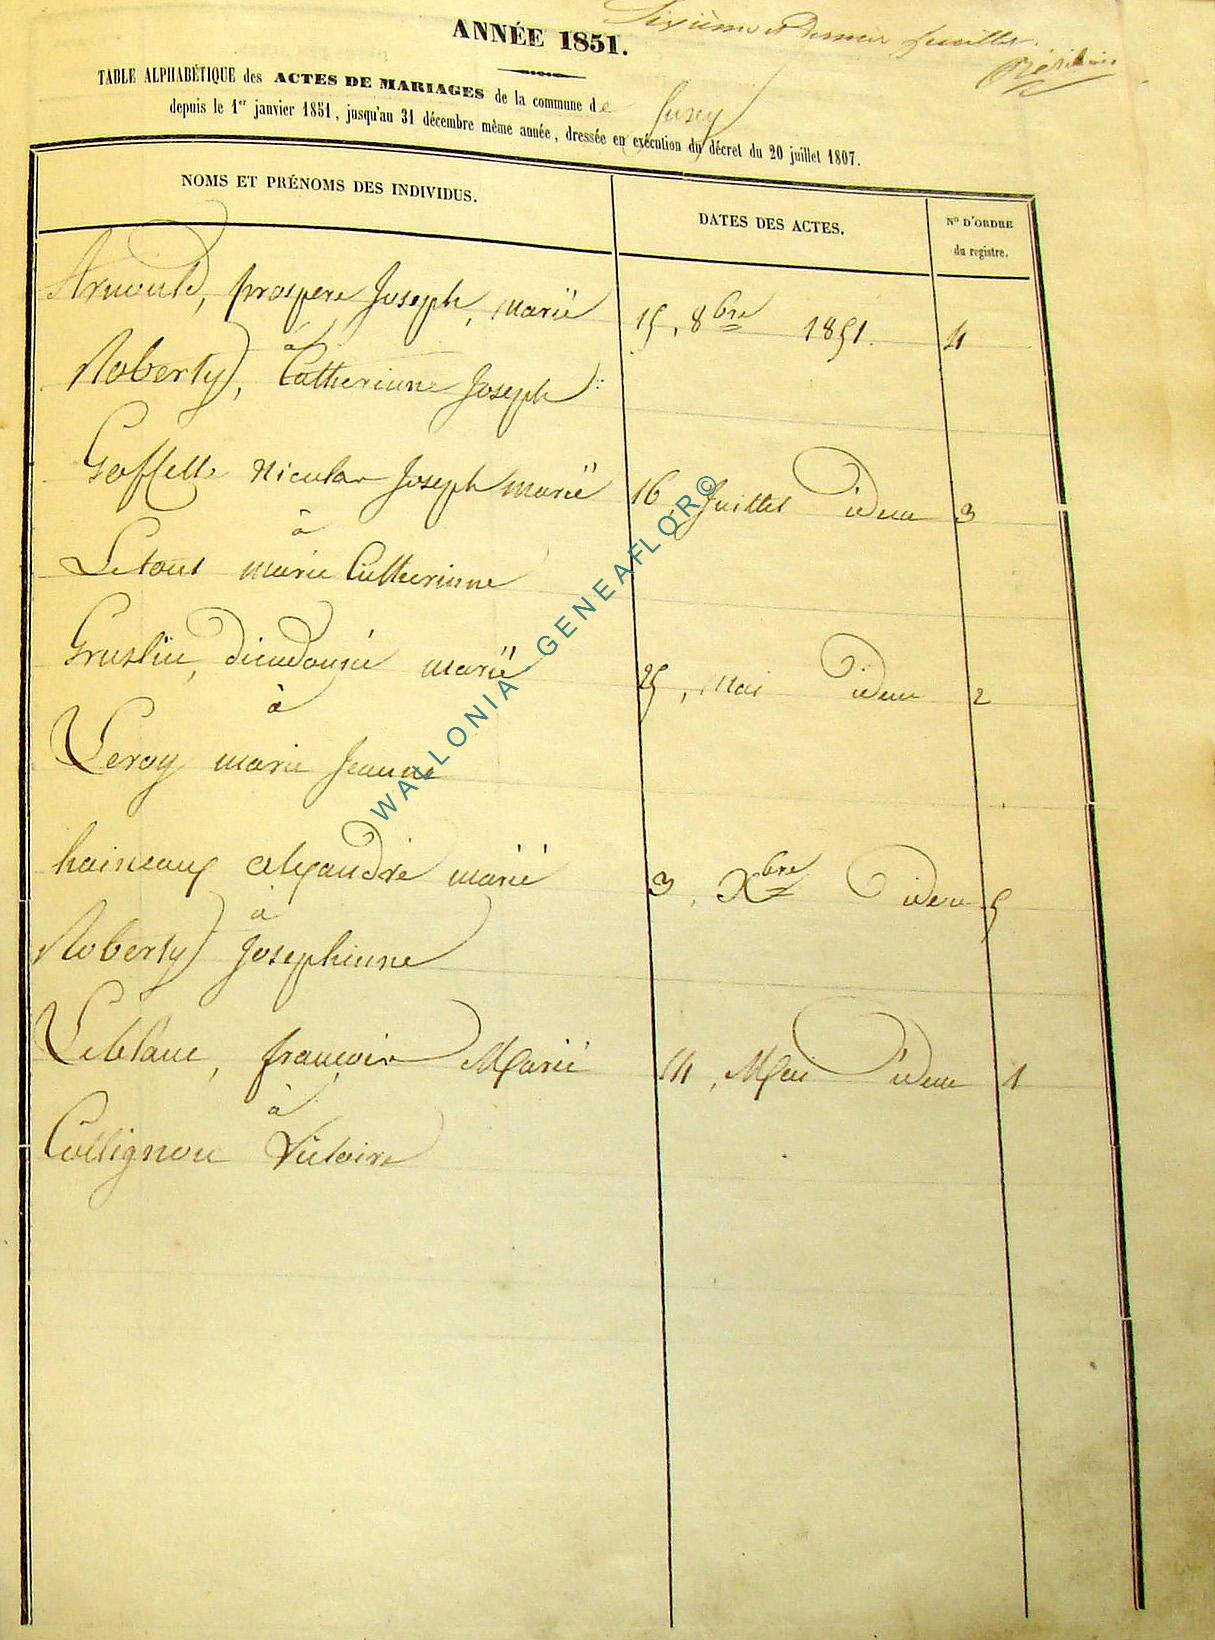 Sixième et Dernier feuillet.
ANNÉE 1851.
TABLE ALPHABÉTIQUE des ACTES DE MARIAGES de la commune de Jusey
depuis le 1er janvier 1851, jusqu'au 31 décembre même année, dressée en exécution du décret du 20 juillet 1807.
NOMS ET PRÉNOMS DES INDIVIDUS. DATES DES ACTES. No D'ORDRE
du registre.
Arnould, prospere Joseph, marié 15, 8bre 1851. 4
à
Roberty, Catherinne Joseph
Goffette Nicolas Joseph marié 16 Juillet idem 3
à
Letout marie Catherinne
Gruslin, dieudonné marié 25, Mai idem 2
à
Leroy marie Jeanne
haineaux alexandre marié 3, Xbre idem 5
à
Roberty Josephinne
Leblanc, françois Marié 14, Mai idem 1
à
Collignon Victoire
WALLONIA - GENEAFLOR©